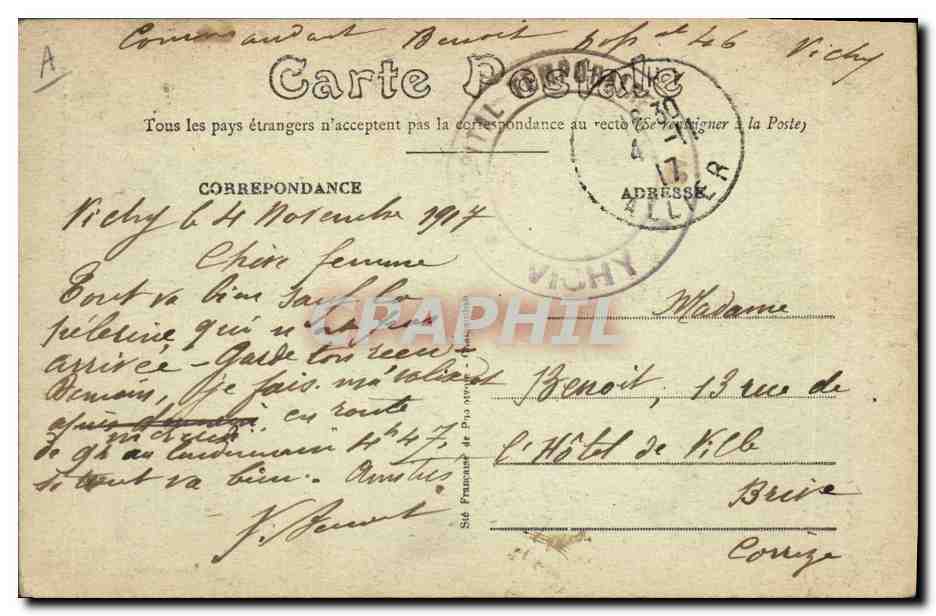 A
Commandant Benoit Hopital 46 Vichy
Carte Postale
Tous les pays étrangers n'acceptent pas la correspondance au recto (Se renseigner à la Poste)
HOPITAL TEMPORAIRE
VICHY
30
4
17
ALLIER
CORREPONDANCE
ADRESSE
Vichy le 4 Novembre 1917
Chère femme
Tout va bien sauf la
pélerine qui n'est pas
arrivée - Garde ton recu -
Demain, je fais ma valise et
en route
mercredi
de 9h au lendemain 4h47,
si tout va bien. Amitiés
V. Benoit
GRAPHIL
Sté Française de
Madame
Benoit, 13 rue de
l'Hôtel de Ville
Brive
Corrèze